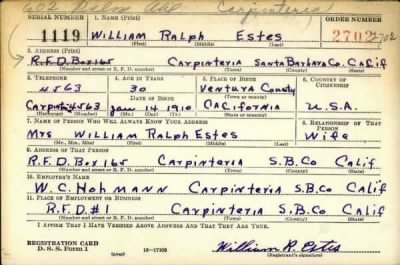 602 Palm Ave Carpinteria
SERIAL NUMBER 1. NAME (Print) ORDER NUMBER
1119 William Ralph Estes 2702 2702
(First) (Middle) (Last)
2. ADDRESS (Print)
R.F.D. Box 165 Carpinteria Santa Barbara Co. Calif
(Number and street or R. F. D. number) (Town) (County) (State)
3. TELEPHONE 4. AGE IN YEARS 5. PLACE OF BIRTH 6. COUNTRY OF CITIZENSHIP
4563 30 Ventura County
DATE OF BIRTH (Town or county)
Carpinteria 4563 Jan 14 1910 California U.S.A.
(Exchange) (Number) (Mo.) (Day) (Yr.) (State or country)
7. NAME OF PERSON WHO WILL ALWAYS KNOW YOUR ADDRESS 8. RELATIONSHIP OF THAT PERSON
Mrs William Ralph Estes Wife
(Mr., Mrs., Miss) (First) (Middle) (Last)
9. ADDRESS OF THAT PERSON
R.F.D. Box 165 Carpinteria S.B. Co Calif
(Number and street or R. F. D. number) (Town) (County) (State)
10. EMPLOYER'S NAME
W. C. Hohmann Carpinteria S.B. Co Calif
11. PLACE OF EMPLOYMENT OR BUSINESS
R.F.D. #1 Carpinteria S.B. Co Calif
(Number and street or R. F. D. number) (Town) (County) (State)
I AFFIRM THAT I HAVE VERIFIED ABOVE ANSWERS AND THAT THEY ARE TRUE.
REGISTRATION CARD
D. S. S. Form 1 16-17105 William R. Estes
(Registrant's signature)